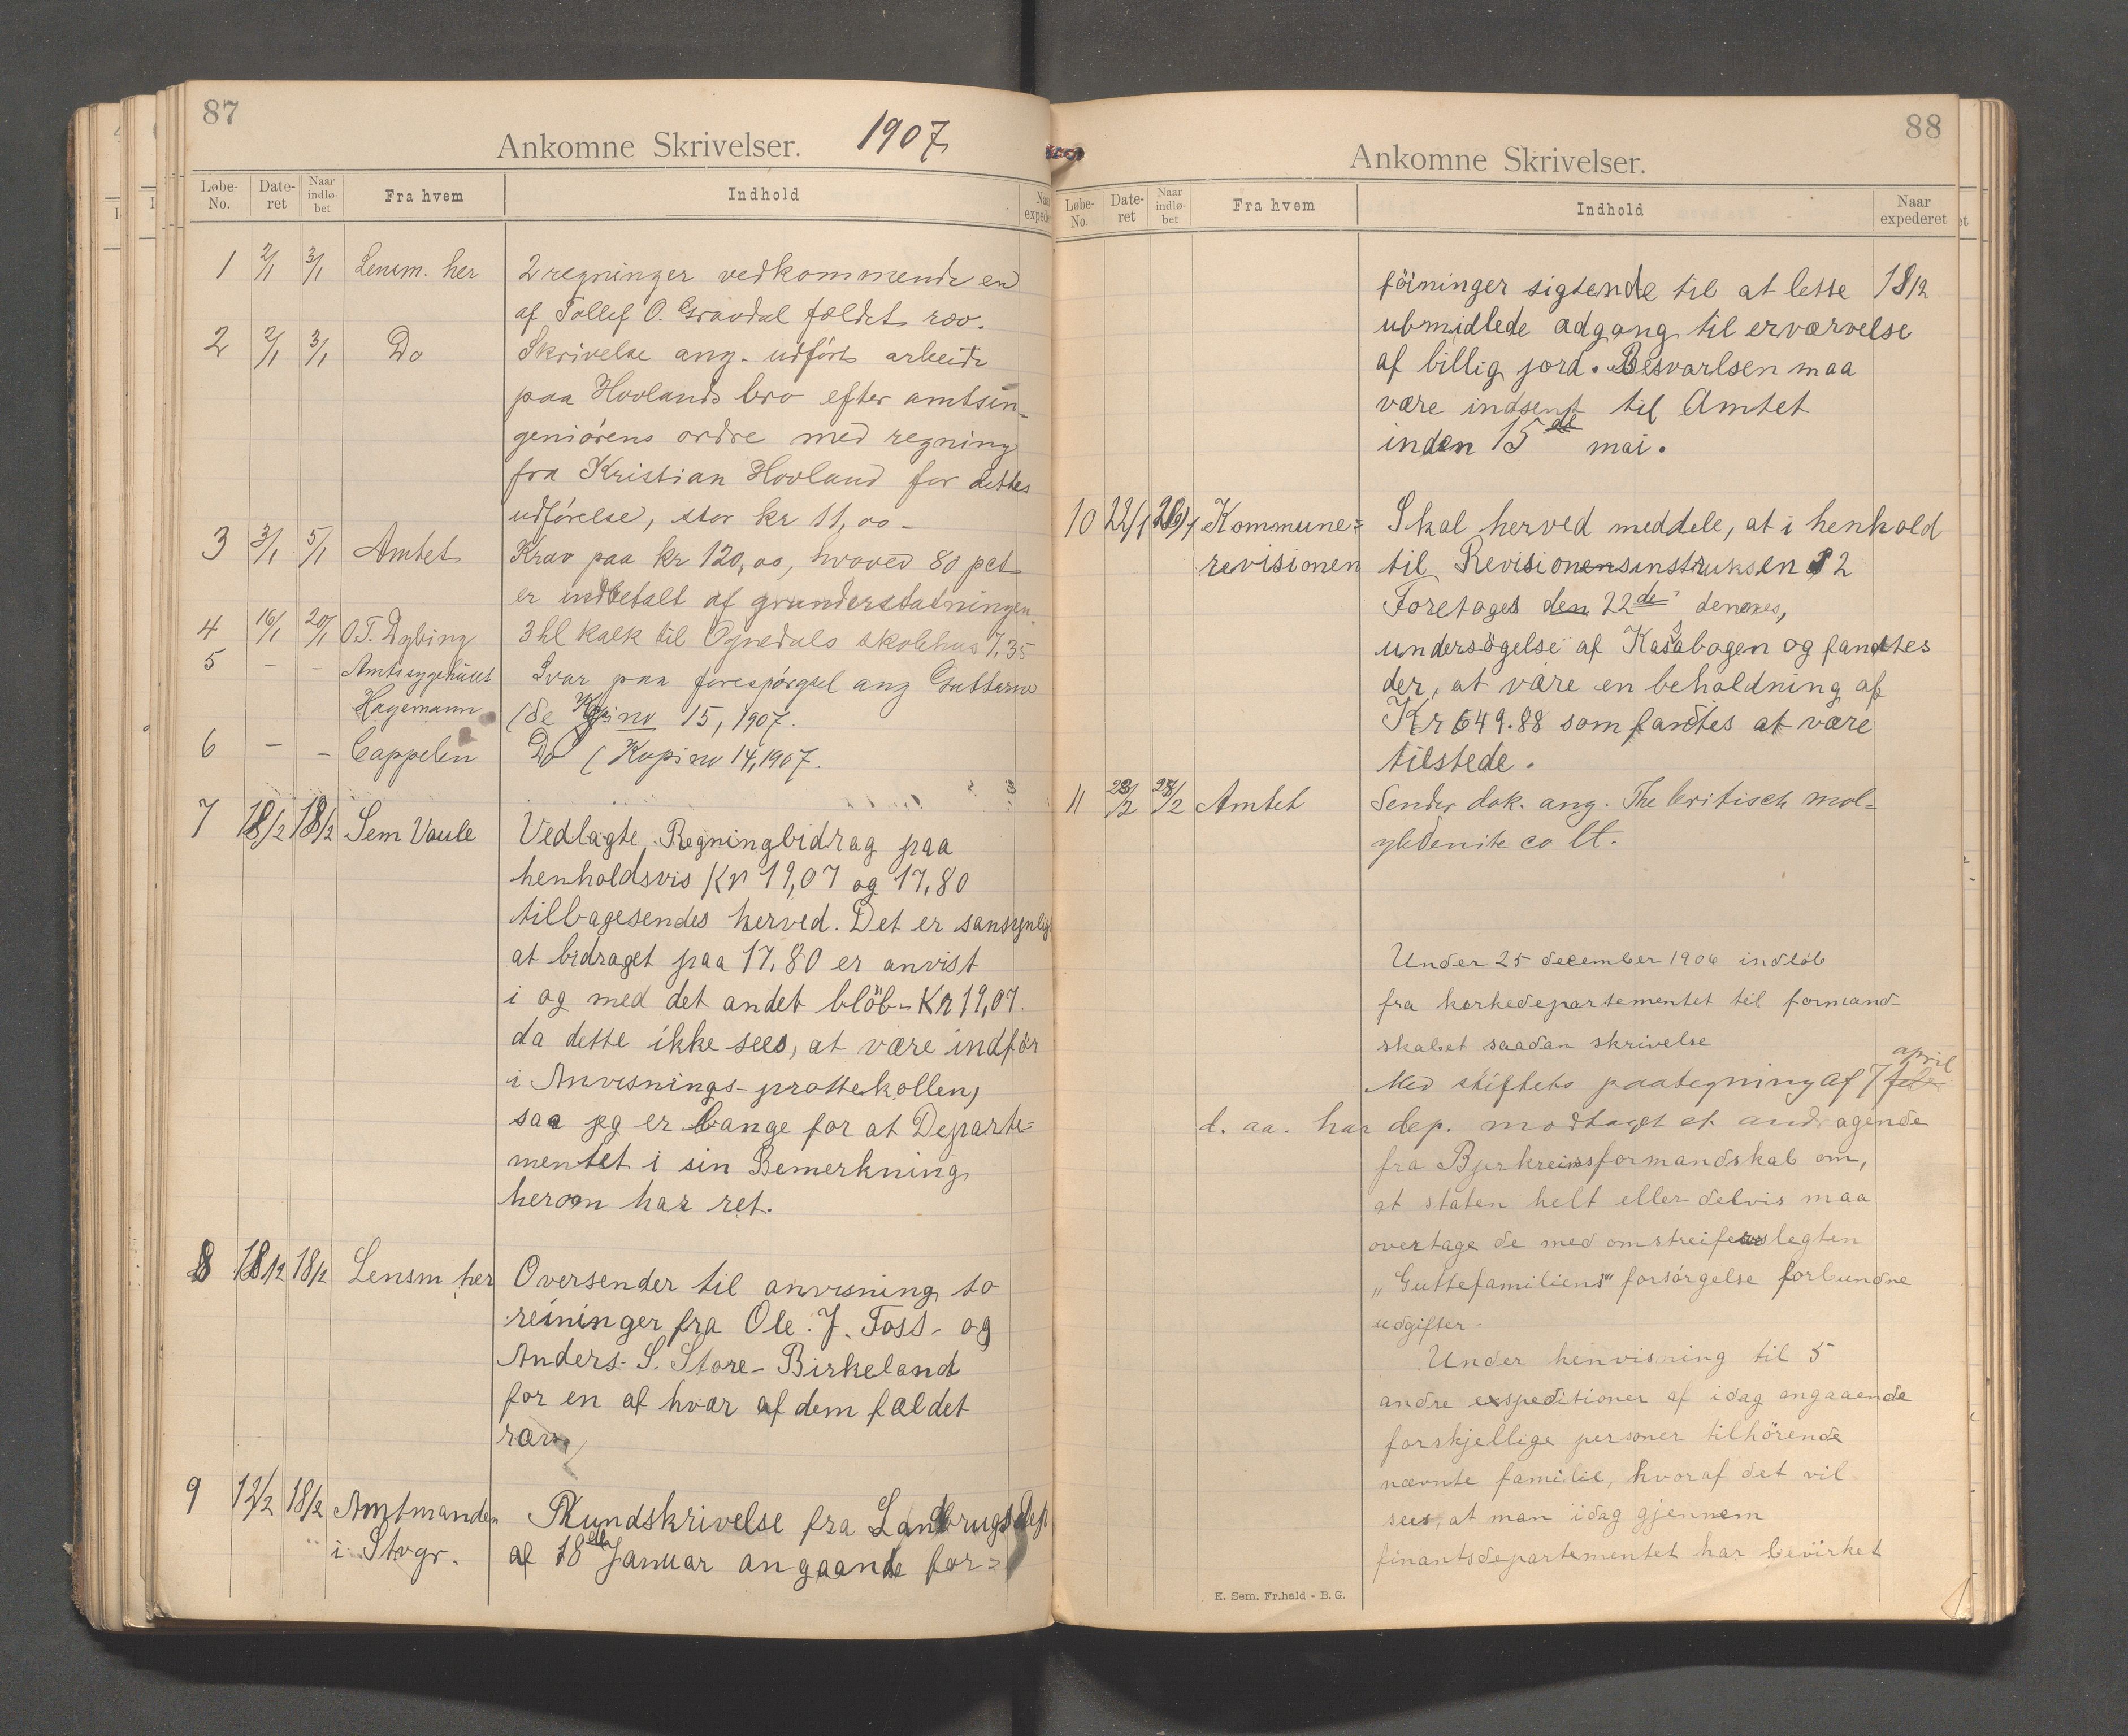 87
Ankomne Skrivelser. 1907
Løbe-No. Date-ret Naar indlø-bet Fra hvem Indhold Naar expede
1 2/1 3/1 Lensm. her 2 regninger vedkommende en
af Tollef O. Gravdal fældet ræv.
2 2/1 3/1 Do Skrivelse ang. udført arbeide
paa Hovlands bro efter amtsin-
geniörens ordre med regning
fra Kristian Hovland for dettes
udförelse, stor kr 11,00 -
3 3/1 5/1 Amtet Krav paa kr 120,00, hvoved 80 pct
er indbetalt af grunderstatningen
4 16/1 20/1 O.T. Dybing 3 hl kalk til Ognedals skolehus 7,35
5 - - Amtssygehuset Svar paa forespørgsel ang Guttarne
Hagemann (se Kopi no 15, 1907.
6 - - Cappelen Do (Kopi no 14, 1907.
7 18/2 18/2 Sem Vaule Vedlagte Regningbidrag paa
henholdsvis Kr 19,07 og 17,80
tilbagesendes herved. Det er sansynlig
at bidraget paa 17,80 er anvist
i og med det andet blöb - Kr 19,07.
da dette ikke sees, at være indför
i Anvisnings-prottekollen,
saa jeg er bange for at Departe=
mentet i sin Bemerkning
herom har ret.
8 18/2 18/2 Lensm her Oversender til anvisning to
reininger fra Ole. J. Foss - og
Anders. S. Store - Birkeland
for en af hvær af dem fældet
ræv
9 12/2 18/2 Amtmanden Rundskrivelse fra Landbrugsdep
i Stvgr. af 18de Januar angaande for=
88
Ankomne Skrivelser.
Løbe-No. Date-ret Naar indlø-bet Fra hvem Indhold Naar expederet
föininger sigtende til at lette 18/2
ubmidlede adgang til erværvelse
af billig jord. Besvarlsen maa
være indsent til Amtet
inden 15de mai.
10 22/1 26/1 Kommune= Skal herved meddele, at i henhold
revisionen til Revisionensinstruksen § 2
Foretoges den 22de denenes,
undersögelse af Kassabogen og fandtes
der, at være en beholdning af
Kr 649.88 som fandtes at være
tilstede.
11 23/2 27/2 Amtet Sender dok. ang. The britisch mol=
ybdenite co lt.
Under 25 december 1906 indlöb
fra kerkedepartementet til formand-
skabet saadan skrivelse
Med stiftets paategning af 7 febr april
d. aa. har dep. modtaget et andragende
fra Bjerkreimsformandskab om,
at staten helt eller delvis maa
overtage de med omstreiferslegten
„Guttefamiliens" forsörgelse forbundne
udgifter -
Under henvisning til 5
andre expeditioner af idag angaaende
forskjellige personer tilhörende
nævnte familie, hvoraf det vil
sees, at man idag gjennem
finantsdepartementet har bevirket
E. Sem. Fr.hald - B. G.